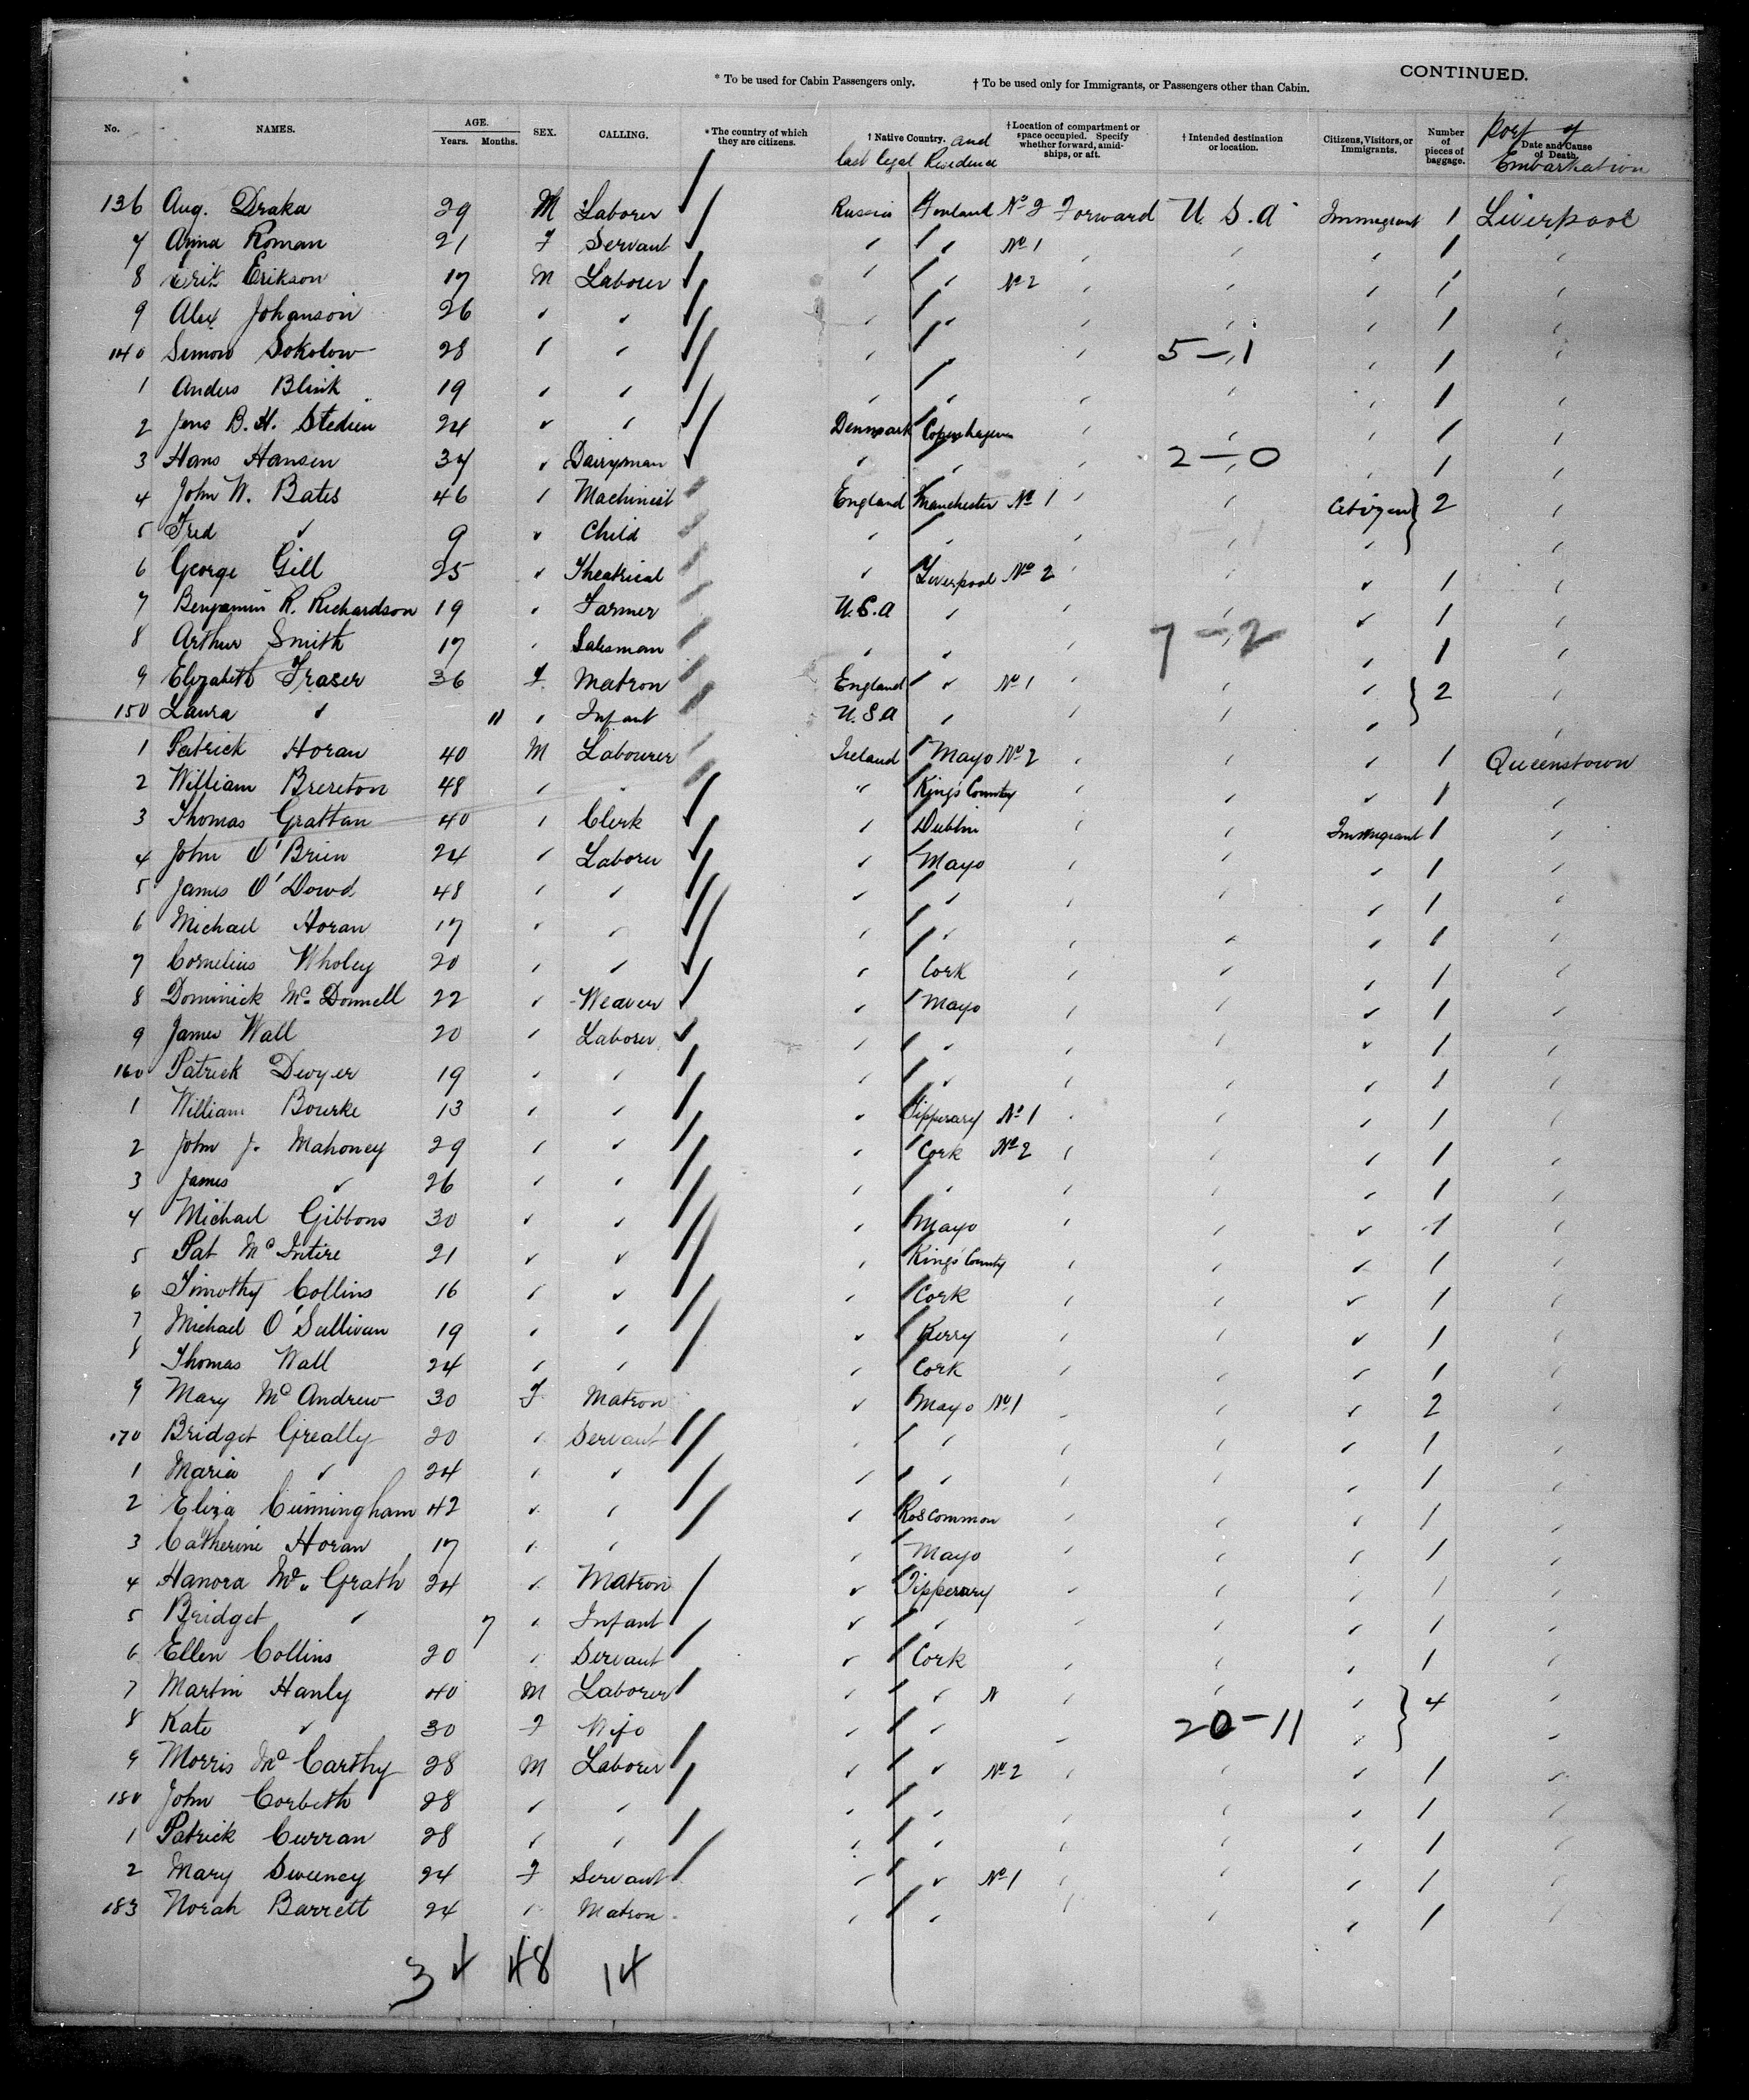 * To be used for Cabin Passengers only. † To be used only for Immigrants, or Passengers other than Cabin. CONTINUED.
No. NAMES. AGE. Years. Months. SEX. CALLING. * The country of which they are citizens. † Native Country. and last legal Residence † Location of compartment or space occupied. Specify whether forward, amidships, or aft. † Intended destination or location. Citizens, Visitors, or Immigrants. Number of pieces of baggage. Date and Cause of Death. Port of Embarkation
136 Aug. Draka 29 M Laborer Russia Finland No 2 Forward U.S.A Immigrant 1 Liverpool
7 Roman 21 F Servant No 1 1
8 Erik Erikson 17 M Laborer No 2 1
9 Alex Johanson 26 1
140 Simon Sokolow 28 5-1 1
1 Anders Blink 19 1
2 Jens B. H. 24 Denmark Copenhagen 1
3 Hans Hansen 34 Dairyman 2-0 1
4 John W. Bates 46 Machinist England Manchester No 1 Citizen 2
5 Fred 9 Child
6 George Gill 25 Theatrical Liverpool No 2 1
7 Benjamin R. Richardson 19 Farmer U.S.A 1
8 Arthur Smith 17 Salesman 7-2 1
9 Elizabeth Fraser 36 F Matron England No 1 2
150 Laura 11 Infant U.S.A
1 Patrick Horan 40 M Labourer Ireland Mayo No 2 1 Queenstown
2 William Brereton 48 King's County 1
3 Thomas Grattan 40 Clerk Dublin Immigrant 1
4 John O'Brien 24 Laborer Mayo 1
5 James O'Dowd 48 1
6 Michael Horan 17 1
7 Cornelius Wholey 20 Cork 1
8 Dominick Mc Donnell 22 Weaver Mayo 1
9 James Wall 20 Laborer 1
160 Patrick Dwyer 19 1
1 William Bourke 13 Tipperary No 1 1
2 John J. Mahoney 29 Cork No 2 1
3 James 26 1
4 Michael Gibbons 30 Mayo 1
5 Pat McIntire 21 King's County 1
6 Timothy Collins 16 Cork 1
7 Michael O'Sullivan 19 Kerry 1
8 Thomas Wall 24 Cork 1
9 Mary McAndrew 30 F Matron Mayo No 1 2
170 Bridget Greally 20 Servant 1
1 Maria 24 1
2 Eliza Cunningham 42 Roscommon 1
3 Catherine Horan 17 Mayo 1
4 Hanora Mc Grath 24 Matron Tipperary 1
5 Bridget 7 Infant 1
6 Ellen Collins 20 Servant Cork 1
7 Martin Hanly 40 M Laborer N 4
8 Kate 30 F Wife 20-11
9 Morris McCarthy 28 M Laborer No 2 1
180 John Corbeth 28 1
1 Patrick Curran 28 1
2 Mary Sweeney 24 F Servant No 1 1
183 Norah Barrett 24 Matron 1
34 48 14